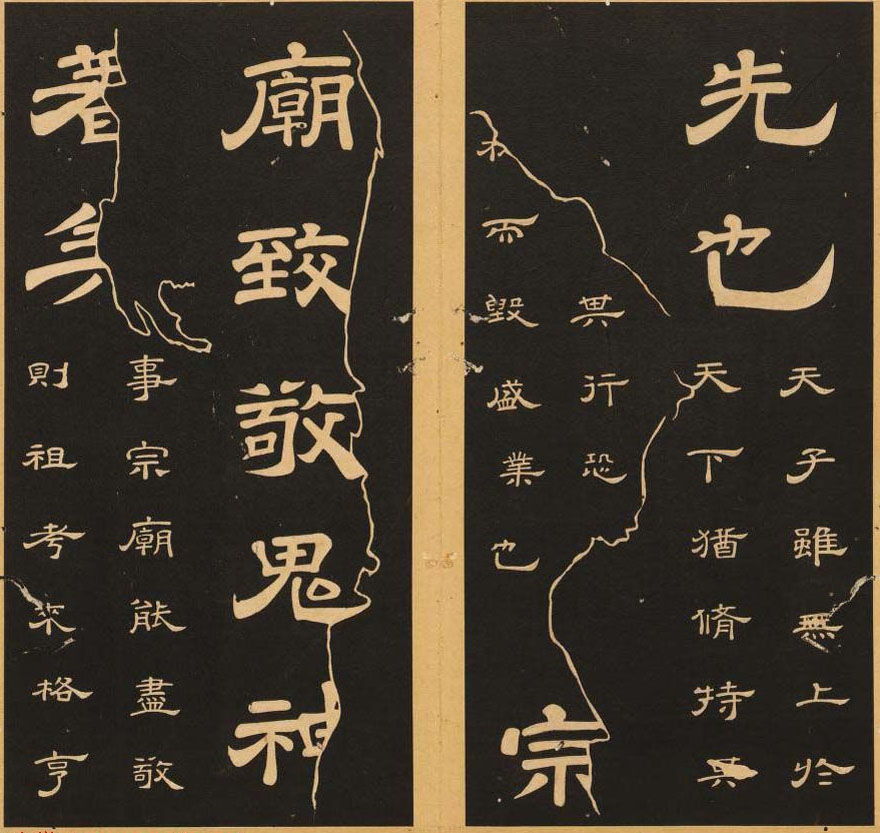 先也
天子雖無上於
天下猶脩持其
其行恐
而毀盛業也
宗
廟致敬鬼神
著矣
事宗廟能盡敬
則祖考來格享